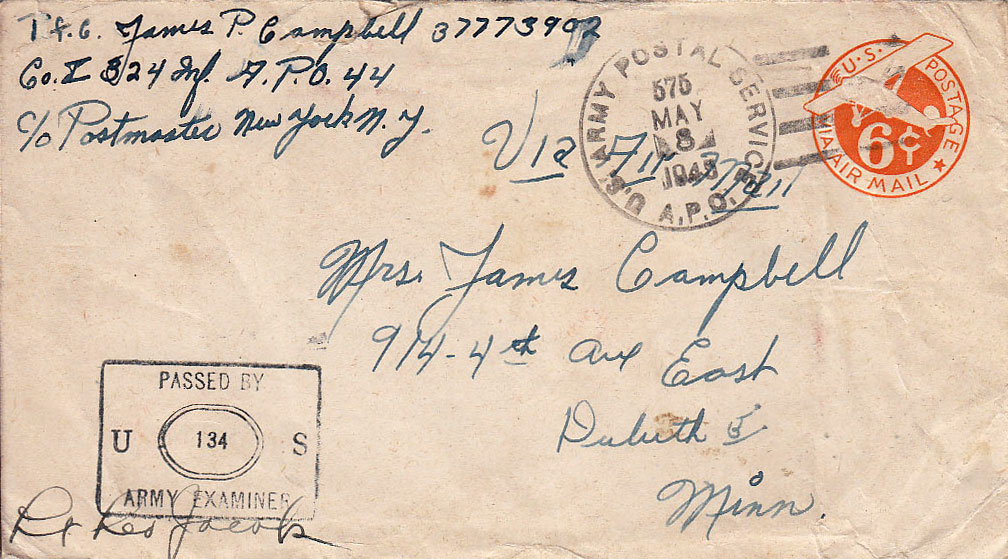 Pfc. James P. Campbell 37773902
Co. I 324 Inf. A.P.O. 44
c/o Postmaster New York N.Y.
U.S. ARMY POSTAL SERVICE
575
MAY
8
1945
A.P.O.
U.S. POSTAGE
6¢
VIA AIR MAIL
Via Air Mail
Mrs. James Campbell
914-4th Ave East
Duluth 5
Minn.
PASSED BY
U 134 S
ARMY EXAMINER
Lt Leo Jacob